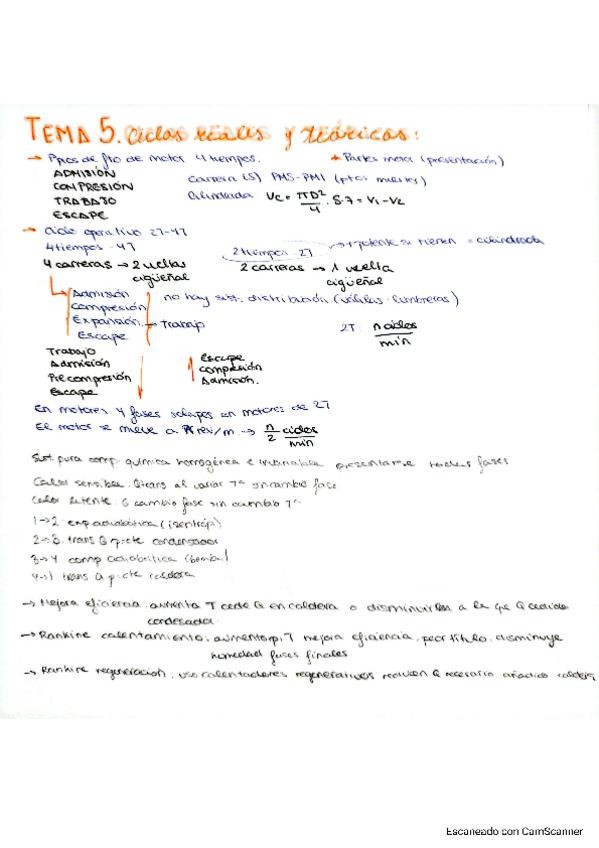 TEMA 5. Ciclos reales y teóricos:
→ Ppios de fto de motor 4 tiempos. * Partes motor (presentación)
ADMISIÓN
COMPRESIÓN Carrera (S) PMS-PMI (ptos muertos)
TRABAJO Cilindrada Vc = πD²/4 · S·z = V1 - V2
ESCAPE
→ Ciclo operativo 2T-4T
4 tiempos - 4T 2 tiempos - 2T → + potente si tienen = cilindrada
4 carreras → 2 vueltas cigüeñal 2 carreras → 1 vuelta cigüeñal
Admisión no hay sist. distribución (válvulas-lumbreras)
Compresión
Expansión → Trabajo 2T n ciclos/min
Escape
Trabajo Escape
Admisión compresión
Precompresión Admisión.
Escape
En motores 4 fases solapes en motores de 2T
El motor se mueve a n rev/m → n/2 ciclos/min
Sust. pura comp. química homogénea e invariable presentarse fases
Calor sensible. Qtrans al variar Tª sin cambio fase
Calor latente. Q cambio fase sin cambio Tª
1→2 exp adiabática (isentróp)
2→3 trans Q p:cte condensador
3→4 comp adiabática (bomba)
4→1 trans Q p:cte caldera
→ Mejora eficiencia. aumenta T cede Q en caldera o disminuir a la que Q cedido
condensador
→ Rankine calentamiento. aumento p, T mejora eficiencia, título. disminuye
humedad fases finales
→ Rankine regeneración. uso calentadores regenerativos reducen Q necesario añadido caldera
Escaneado con CamScanner